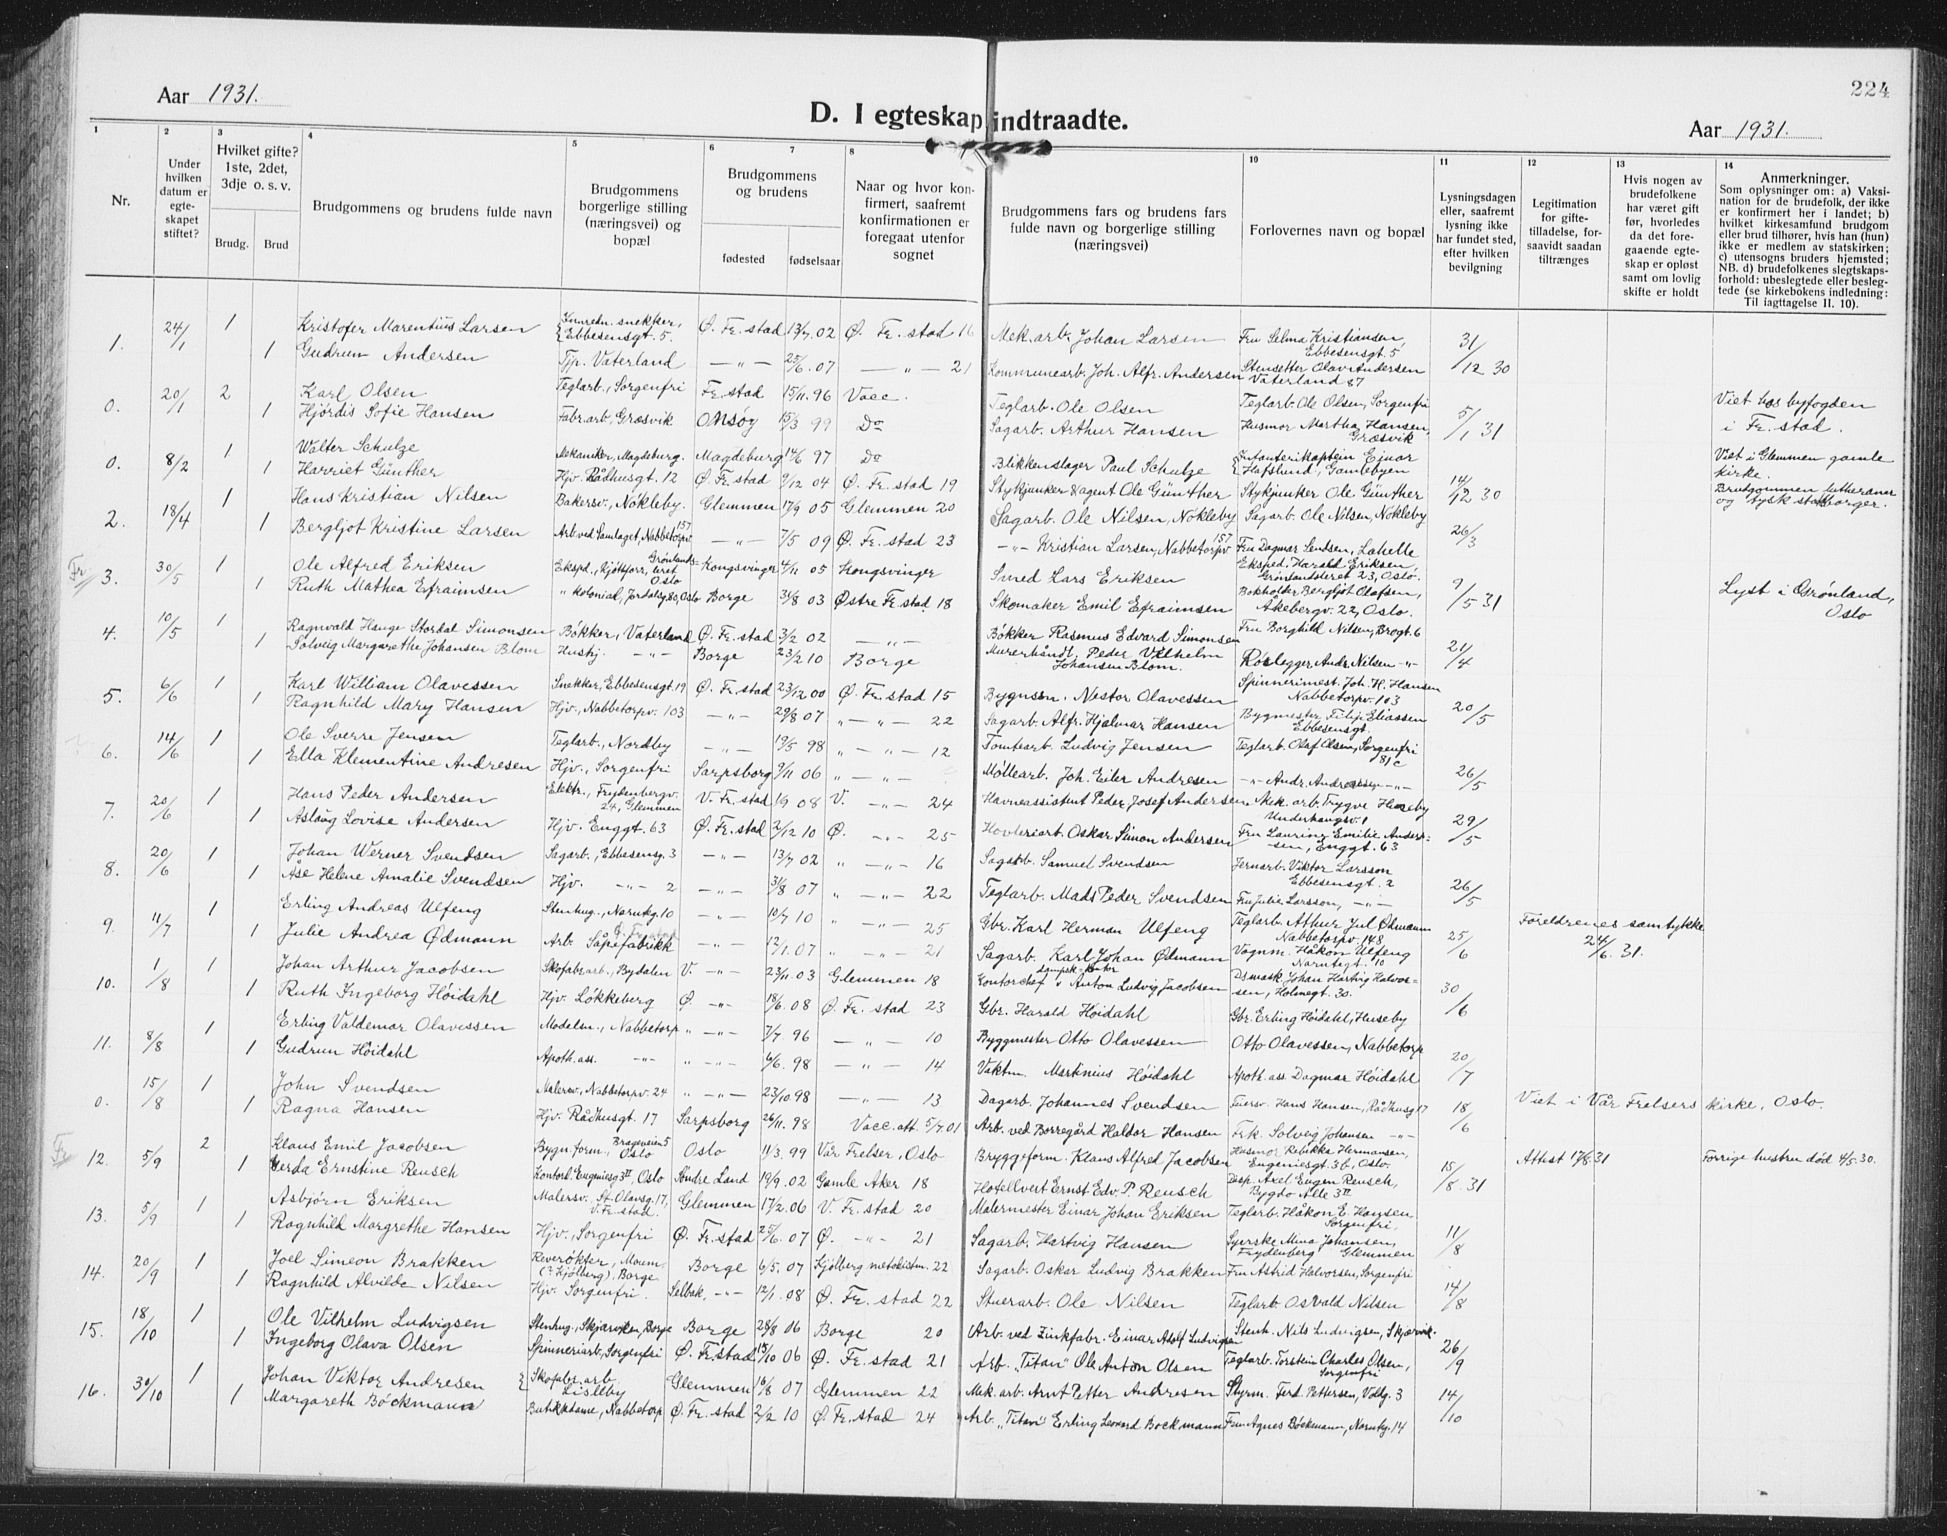 224
Aar 1931.
D. I egteskap indtraadte.
Aar 1931.
1 2 3 4 5 6 7 8 9 10 11 12 13 14
Nr.
Under hvilken datum er egte-skapet stiftet?
Hvilket gifte? 1ste, 2det, 3dje o. s. v.
Brudg. Brud
Brudgommens og brudens fulde navn
Brudgommens borgerlige stilling (næringsvei) og bopæl
Brudgommens og brudens
fødested fødselsaar
Naar og hvor kon-firmert, saafremt konfirmationen er foregaat utenfor sognet
Brudgommens fars og brudens fars fulde navn og borgerlige stilling (næringsvei)
Forlovernes navn og bopæl
Lysningsdagen eller, saafremt lysning ikke har fundet sted, efter hvilken bevilgning
Legitimation for gifte-tilladelse, for-saavidt saadan tiltrænges
Hvis nogen av brudefolkene har været gift før, hvorledes da det fore-gaaende egte-skap er opløst samt om lovlig skifte er holdt
Anmerkninger.
Som oplysninger om: a) Vaksi-nation for de brudefolk, der ikke er konfirmert her i landet; b) hvilket kirkesamfund brudgom eller brud tilhører, hvis han (hun) ikke er medlem av statskirken; c) utensogns bruders hjemsted; NB. d) brudefolkenes slegtskaps-forhold: ubeslegtede eller besleg-tede (se kirkebokens indledning: Til iagttagelse II. 10).
1. 24/1 1 Kristofer Marentius Larsen snekker, Ebbesensgt. 5. Ø. Fr.stad 13/7 02 Ø. Fr. stad 16 Mek. arb. Johan Larsen Fru Selma Kristiansen, Ebbesensgt. 5 31/12 30
1 Gudrun Andersen Tjp. Vaterland —„— 25/6 07 —„— 21 Kommunearb. Joh. Alfr. Andersen Stensetter Olav Andersen Vaterland 87
0. 20/1 2 Karl Olsen Teglarb., Sorgenfri Fr.stad 15/11 96 Vacc. Teglarb. Ole Olsen Teglarb. Ole Olsen, Sorgenfri 5/1 31 Viet hos byfogden
1 Hjördis Sofie Hansen Fabr.arb., Græsvik Onsøy 15/3 99 Do Sagarb. Arthur Hansen Husmor Martha Hansen, Græsvik i Fr. stad.
0. 8/2 1 Walter Schulze Mekaniker, Magdeburg. Magdeburg 14/6 97 Do Blikkenslager Paul Schulze Infanterikaptein Einar Hafslund, Gamlebyen 14/12 30 Viet i Glemmen gamle kirke.
1 Harriet Günther Hjv. Rådhusgt. 12 Ø. Fr. stad 7/12 04 Ø. Fr. stad 19 Stykjunker & agent Ole Günther Stykjunker Ole Günther Brudgommen lutheraner og tysk statsborger.
2. 18/4 1 Hans Kristian Nilsen Bakersv., Nøkleby. Glemmen 17/9 05 Glemmen 20 Sagarb. Ole Nilsen, Nøkleby Sagarb. Ole Nilsen, Nøkleby 26/3
1 Bergljot Kristine Larsen Arb. ved Samlaget, Nabbetorpv 157 —„— 7/5 09 Ø. Fr. stad 23 —„— Kristian Larsen, Nabbetorpv 157 Fru Dagmar Lendsen, Lahelle
Fr 3. 30/5 1 Ole Alfred Eriksen Eksped., Kjøttforr., Grønlands-leret Oslo Kongsvinger 4/11 05 Kongsvinger Smed Lars Eriksen Eksped. Harald Eriksen, Grønlandsleret 23, Oslo. 9/5 31 Lyst i Grønland, Oslo
1 Ruth Mathea Efraimsen „ Kolonial, Jordalsg. 80, Oslo Borge 31/8 03 Østre Fr. stad 18 Skomaker Emil Efraimsen Bokholder Bergljot Olafsen, Åkebergv. 22, Oslo.
4. 10/5 1 Ragnvald Hauge Stordal Simonsen Bøkker, Vaterland Ø. Fr. stad 3/2 02 —„— Bøkker Rasmus Edvard Simonsen Fru Borghild Nilsen, Brogt. 6 21/4
1 Solveig Margarethe Johansen Blom Hushj. —„— Borge 23/2 10 Borge Murerhåndt. Peder Vilhelm Johansen Blom. Rørlegger Andr. Nilsen —„—
5. 6/6 1 Karl William Olavessen Snekker, Ebbesensgt. 19 Ø. Fr. stad 23/12 00 Ø. Fr. stad 15 Bygnsn. Nestor Olavessen Spinnerimest. Joh. H. Hansen Nabbetorpv. 103 20/5
1 Ragnhild Mary Hansen Hjv., Nabbetorpv. 103 —„— 29/8 07 „—„— 22 Sagarb. Alfr. Hjalmar Hansen Bygmester Filip Eliassen Ebbesensgt.
6. 14/6 1 Ole Sverre Jensen Teglarb., Nordby —„— 19/5 98 „—„— 12 Tomtearb. Ludvig Jensen Teglarb. Olaf Olsen, Sorgenfri 81 c 26/5
1 Ella Klementine Andresen Hjv., Sorgenfri Sarpsborg 9/11 06 „—„— Møllearb. Joh. Eiler Andresen —„— Andr. Andreassen —„—
7. 20/6 1 Hans Peder Andersen Elektr., Frydenbergv. 24, Glemmen V. Fr. stad 1/9 08 V. —„— 24 Havneassistent Peder Josef Andersen Mek. arb. Trygve Huseby Underhaugsv. 1 29/5
1 Aslaug Lovise Andersen Hjv. Enggt. 63 Ø. Fr. stad 2/12 10 Ø. —„— 25 Hovleriarb. Oskar Simon Andersen Fru Laurine Emilie Ander-sen, Enggt. 63
8. 20/6 1 Johan Werner Svendsen Sagarb., Ebbesensg. 3 —„— 13/7 02 „—„— 16 Sagarb. Samuel Svendsen Jernarb. Viktor Larsson Ebbesensgt. 2 26/5
1 Åse Helene Amalie Svendsen Hjv. —„— 2 —„— 31/8 07 „—„— 22 Teglarb. Mads Peder Svendsen Fru Julie Larsson, —„—
9. 11/7 1 Erling Andreas Ulfeng Stenhug., Narntg. 10 —„— 10/7 10 „—„— 25 Gbr. Karl Herman Ulfeng Teglarb. Arthur Jul Ødmann Nabbetorpv. 148 25/6 Foreldrenes samtykke 24/6. 31.
1 Julie Andrea Ødmann Arb. Såpefabrikk —„— 12/1 07 „—„— 21 Sagarb. Karl Johan Ødmann Vognm. Håkon Ulfeng Narntegt. 10
10. 1/8 1 Johan Arthur Jacobsen Skofabr.arb., Bydalen V. —„— 23/11 03 Glemmen 18 Kontorchef v. Anton Ludvig Jacobsen Dsmask. Johan Hartvig Halvor-sen, Holmegt. 30. 30/6
1 Ruth Ingeborg Höidahl Hjv. Løkkeberg Ø. —„— 18/6 08 Ø. Fr. stad 23 Gbr. Harald Höidahl Gbr. Erling Höidahl, Huseby
11. 8/8 1 Erling Valdemar Olavessen Modelsn., Nabbetorp „—„— 7/7 96 —„— 10 Byggmester Otto Olavessen Otto Olavessen, Nabbetorp 20/7
1 Gudrun Höidahl Apoth. ass. —„— „—„— 6/6 98 —„— 14 Viktm. Martinius Höidahl Apoth. ass. Dagmar Höidahl
0. 15/8 1 John Svendsen Malersv., Nabbetorpv. 24 „—„— 23/10 98 —„— 13 Dagarb. Johannes Svendsen Feiersv. Hans Hansen, Rådhusg 17 18/6 Viet i Vår Frelsers kirke, Oslo.
1 Ragna Hansen Hjv. Rådhusgt. 17 Sarpsborg 26/11 98 Vacc. att. 5/7 01 Arb. ved Borregård Haldor Hansen Frk. Solveig Johansen —„—
Fr 12. 5/9 2 Klaus Emil Jacobsen Bygn.form., Brageveien 5 Oslo Oslo 11/3 99 Vår Frelser, Oslo Bryggeform. Klaus Alfred Jacobsen Husmor Rebikke Hermansen, Eugeniesgt. 3b, Oslo. 15/8 31 Attest 17/8 31 Forrige hustru död 4/5. 30.
1 Gerda Ernstine Reusch Kontord. Eugeniesg 3II, Oslo Söndre Land 19/9 02 Gamle Aker 18 Hotellvert Ernst Edv. P. Reusch Disp. Axel Eugen Reusch, Bygdø Alle 3II
13. 5/9 1 Asbjörn Eriksen Malersv. St. Olavsg. 17, V. Fr. stad. Glemmen 17/2 06 V. Fr. stad 20 Malermester Einar Johan Eriksen Teglarb. Håkon E. Hansen, Sorgenfri, 11/8
1 Ragnhild Margrethe Hansen Hjv., Sorgenfri Ø. Fr. stad 25/6 07 Ø. —„— 21 Sagarb. Hartvig Hansen Syerske Mina Johansen, Frydenberg Glemmen
14. 20/9 1 Joel Simeon Brakken Reverøkter, Moum (? Kjölberg), Borge Borge 6/5 07 Kjölberg metodistm. 22 Sagarb. Oskar Ludvig Brakken Fru Astrid Halvorsen, Sorgenfri 14/8
1 Ragnhild Alvilde Nilsen Hjv. Sorgenfri. Selbak, —„— 12/1 08 Ø. Fr. stad 22 Stuerarb. Ole Nilsen Teglarb. Osvald Nilsen
15. 18/10 1 Ole Vilhelm Ludvigsen Stenhug., Skjærviken, Borge Borge 28/8 06 Borge 20 Arb. ved Zinkfabr. Einar Adolf Ludvigsen Stenh. Nils Ludvigsen, Skjærvik. 26/9
1 Ingeborg Olava Olsen Spinneriarb., Sorgenfri Ø. Fr.stad 15/10 06 Ø. Fr. stad 21 Arb. „Titan" Ole Anton Olsen Teglarb. Torstein Charles Olsen, Sorgenfri
16. 30/10 1 Johan Viktor Andresen Skofabr. arb. Lisleby Glemmen 16/8 07 Glemmen 22 Mek. arb. Arnt Petter Andresen Styrm. Ferd. Pettersen, Voldg. 3 14/10
1 Margareth Böckmann Butikkdame, Nabbetorp Ø. Fr. stad 2/2 10 Ø. Fr. stad 24 Arb. „Titan" Erling Leonard Bockmann Fru Agnes Böckmann, Narntg. 14